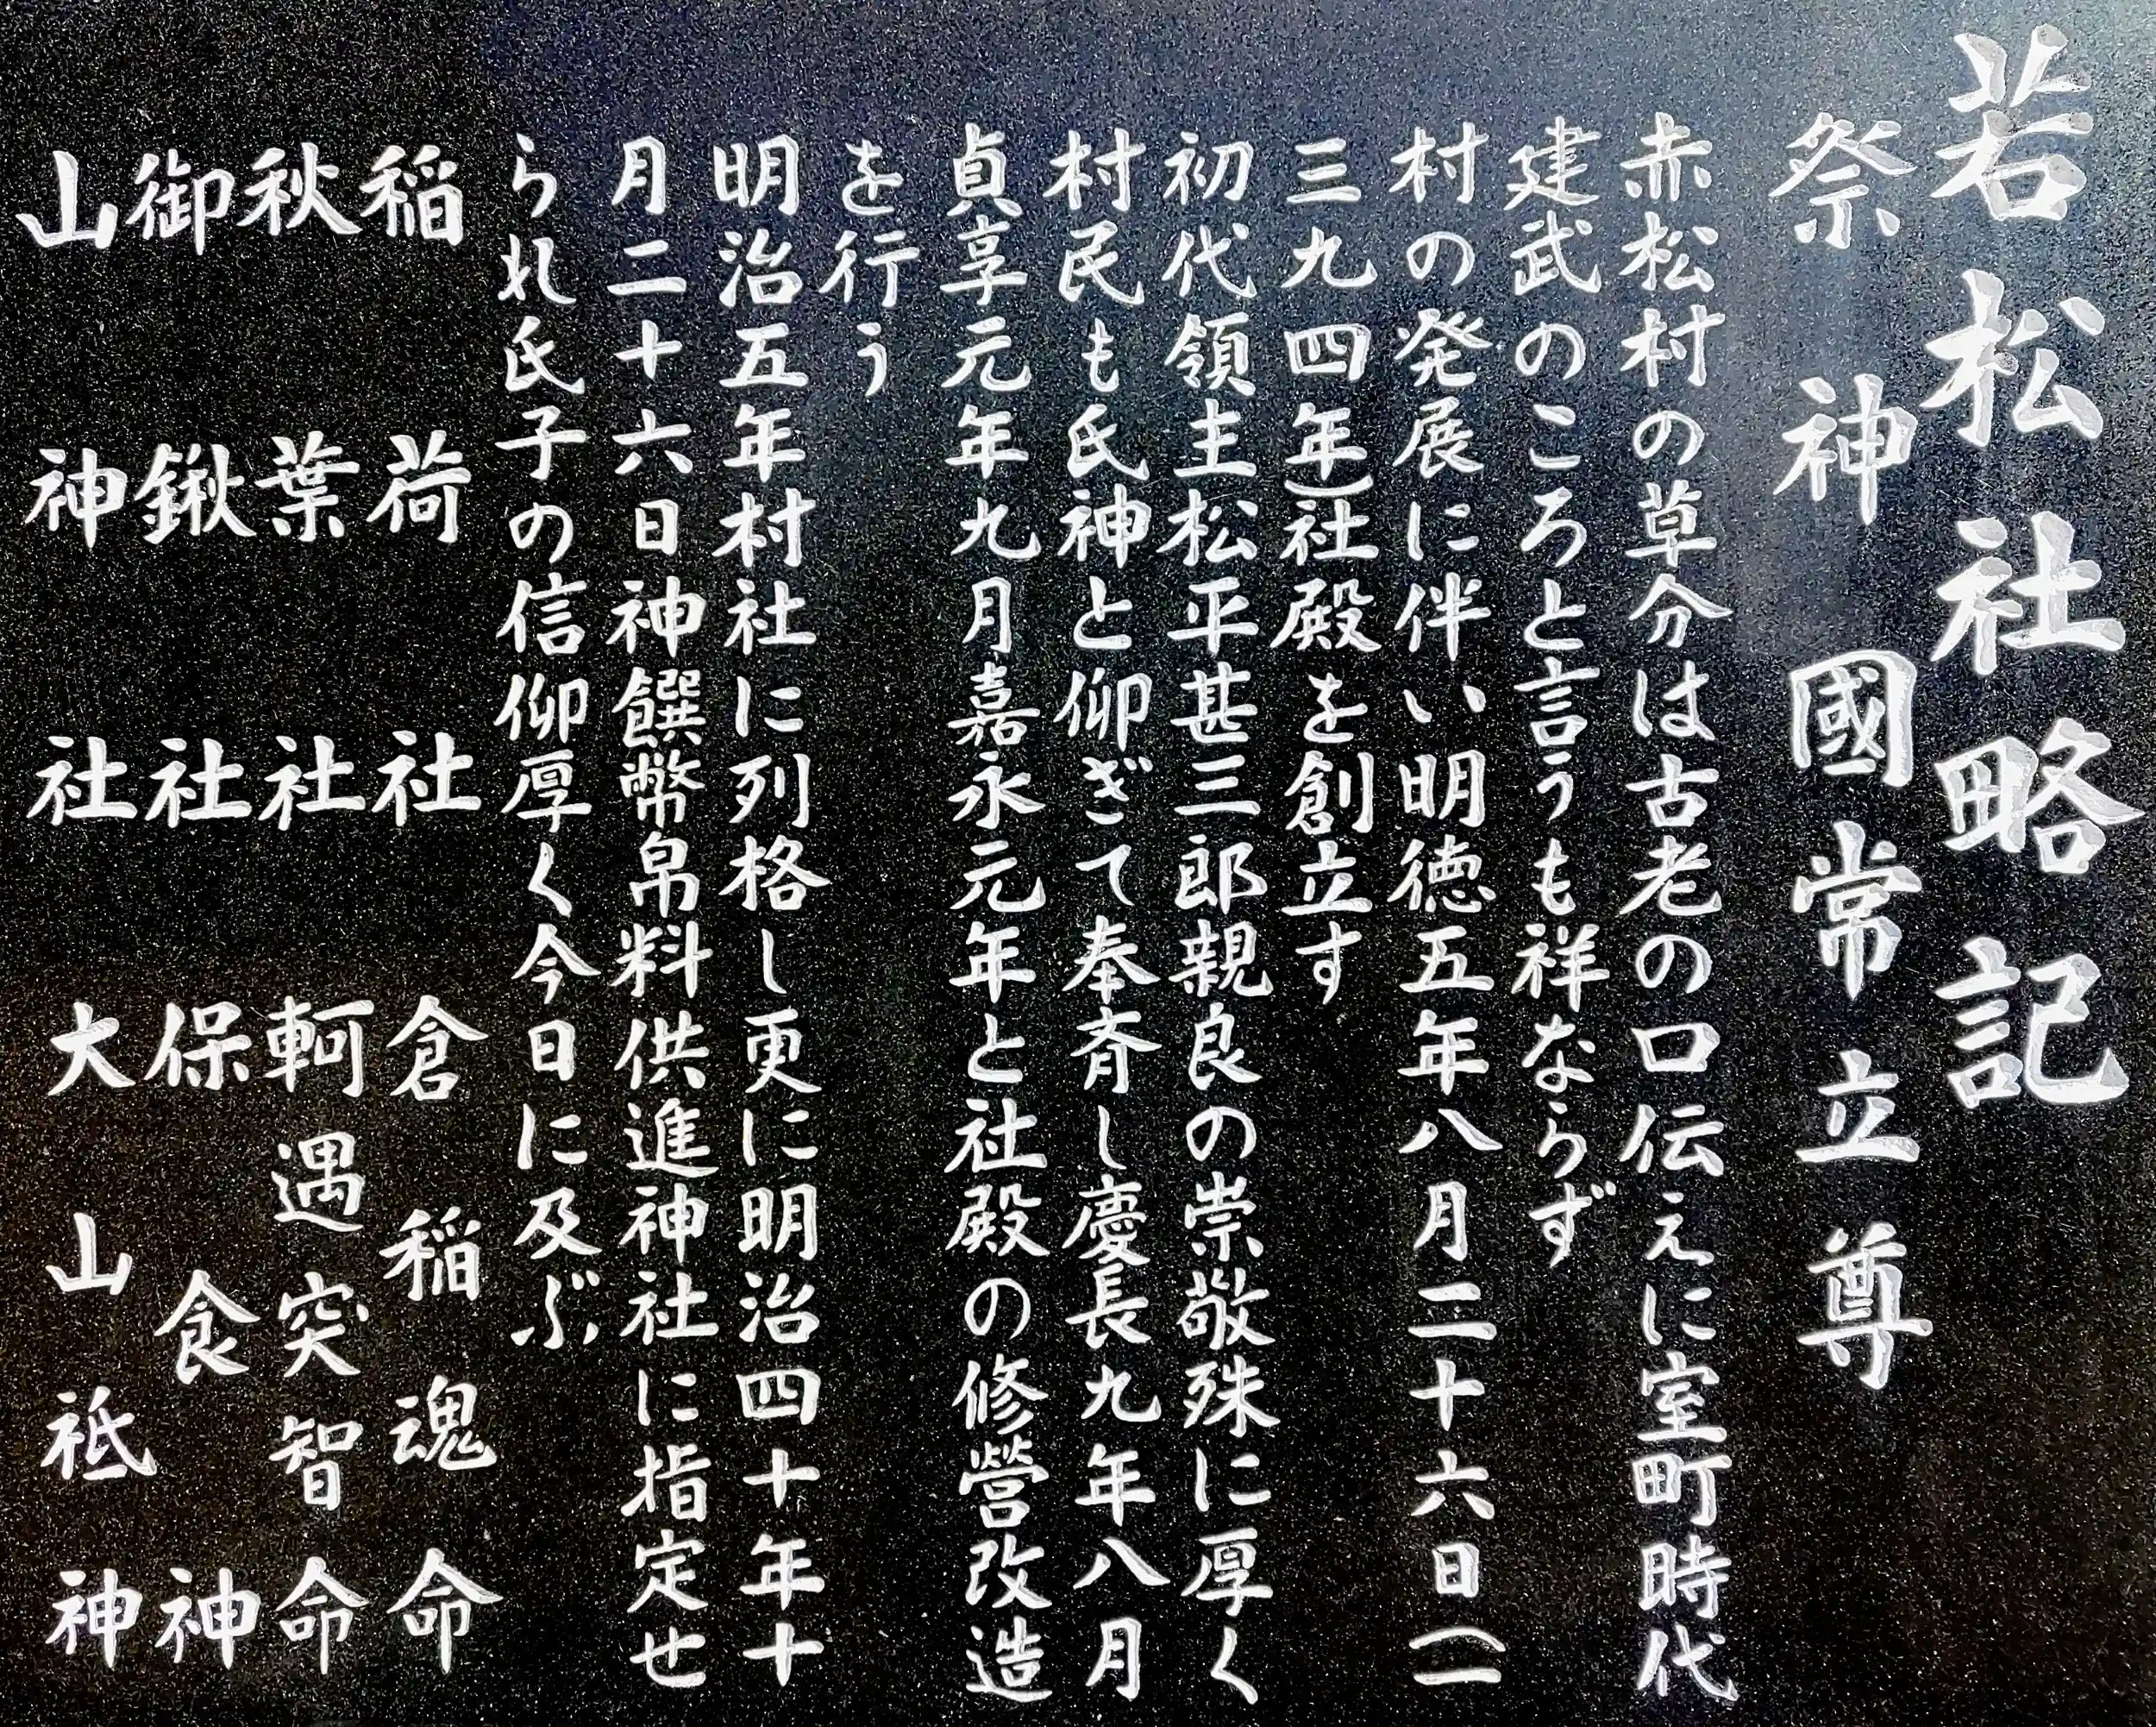 若松社略記
祭神 國常立尊
赤松村の草分は古老の口伝えに室町時代
建武のころと言うも祥ならず
村の発展に伴い明徳五年八月二十六日(一
三九四年)社殿を創立す
初代領主松平甚三郎親良の崇敬殊に厚く
村民も氏神と仰ぎて奉斉し慶長九年八月
貞享元年九月嘉永元年と社殿の修営改造
を行う
明治五年村社に列格し更に明治四十年十
月二十六日神饌幣帛料供進神社に指定せ
られ氏子の信仰厚く今日に及ぶ
稲荷社 倉稲魂命
秋葉社 軻遇突智命
御鍬社 保食神
山神社 大山祇神